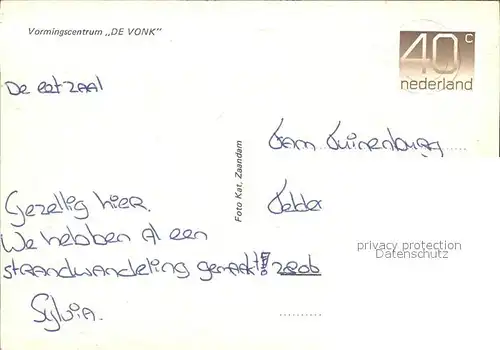 Vormingscentrum „DE VONK"
40 c
nederland
De eetzaal
Foto Kat, Zaandam
Gezellig hier.
We hebben al een
strandwandeling gemaakt!
Sylvia.
privacy protection
Datenschutz